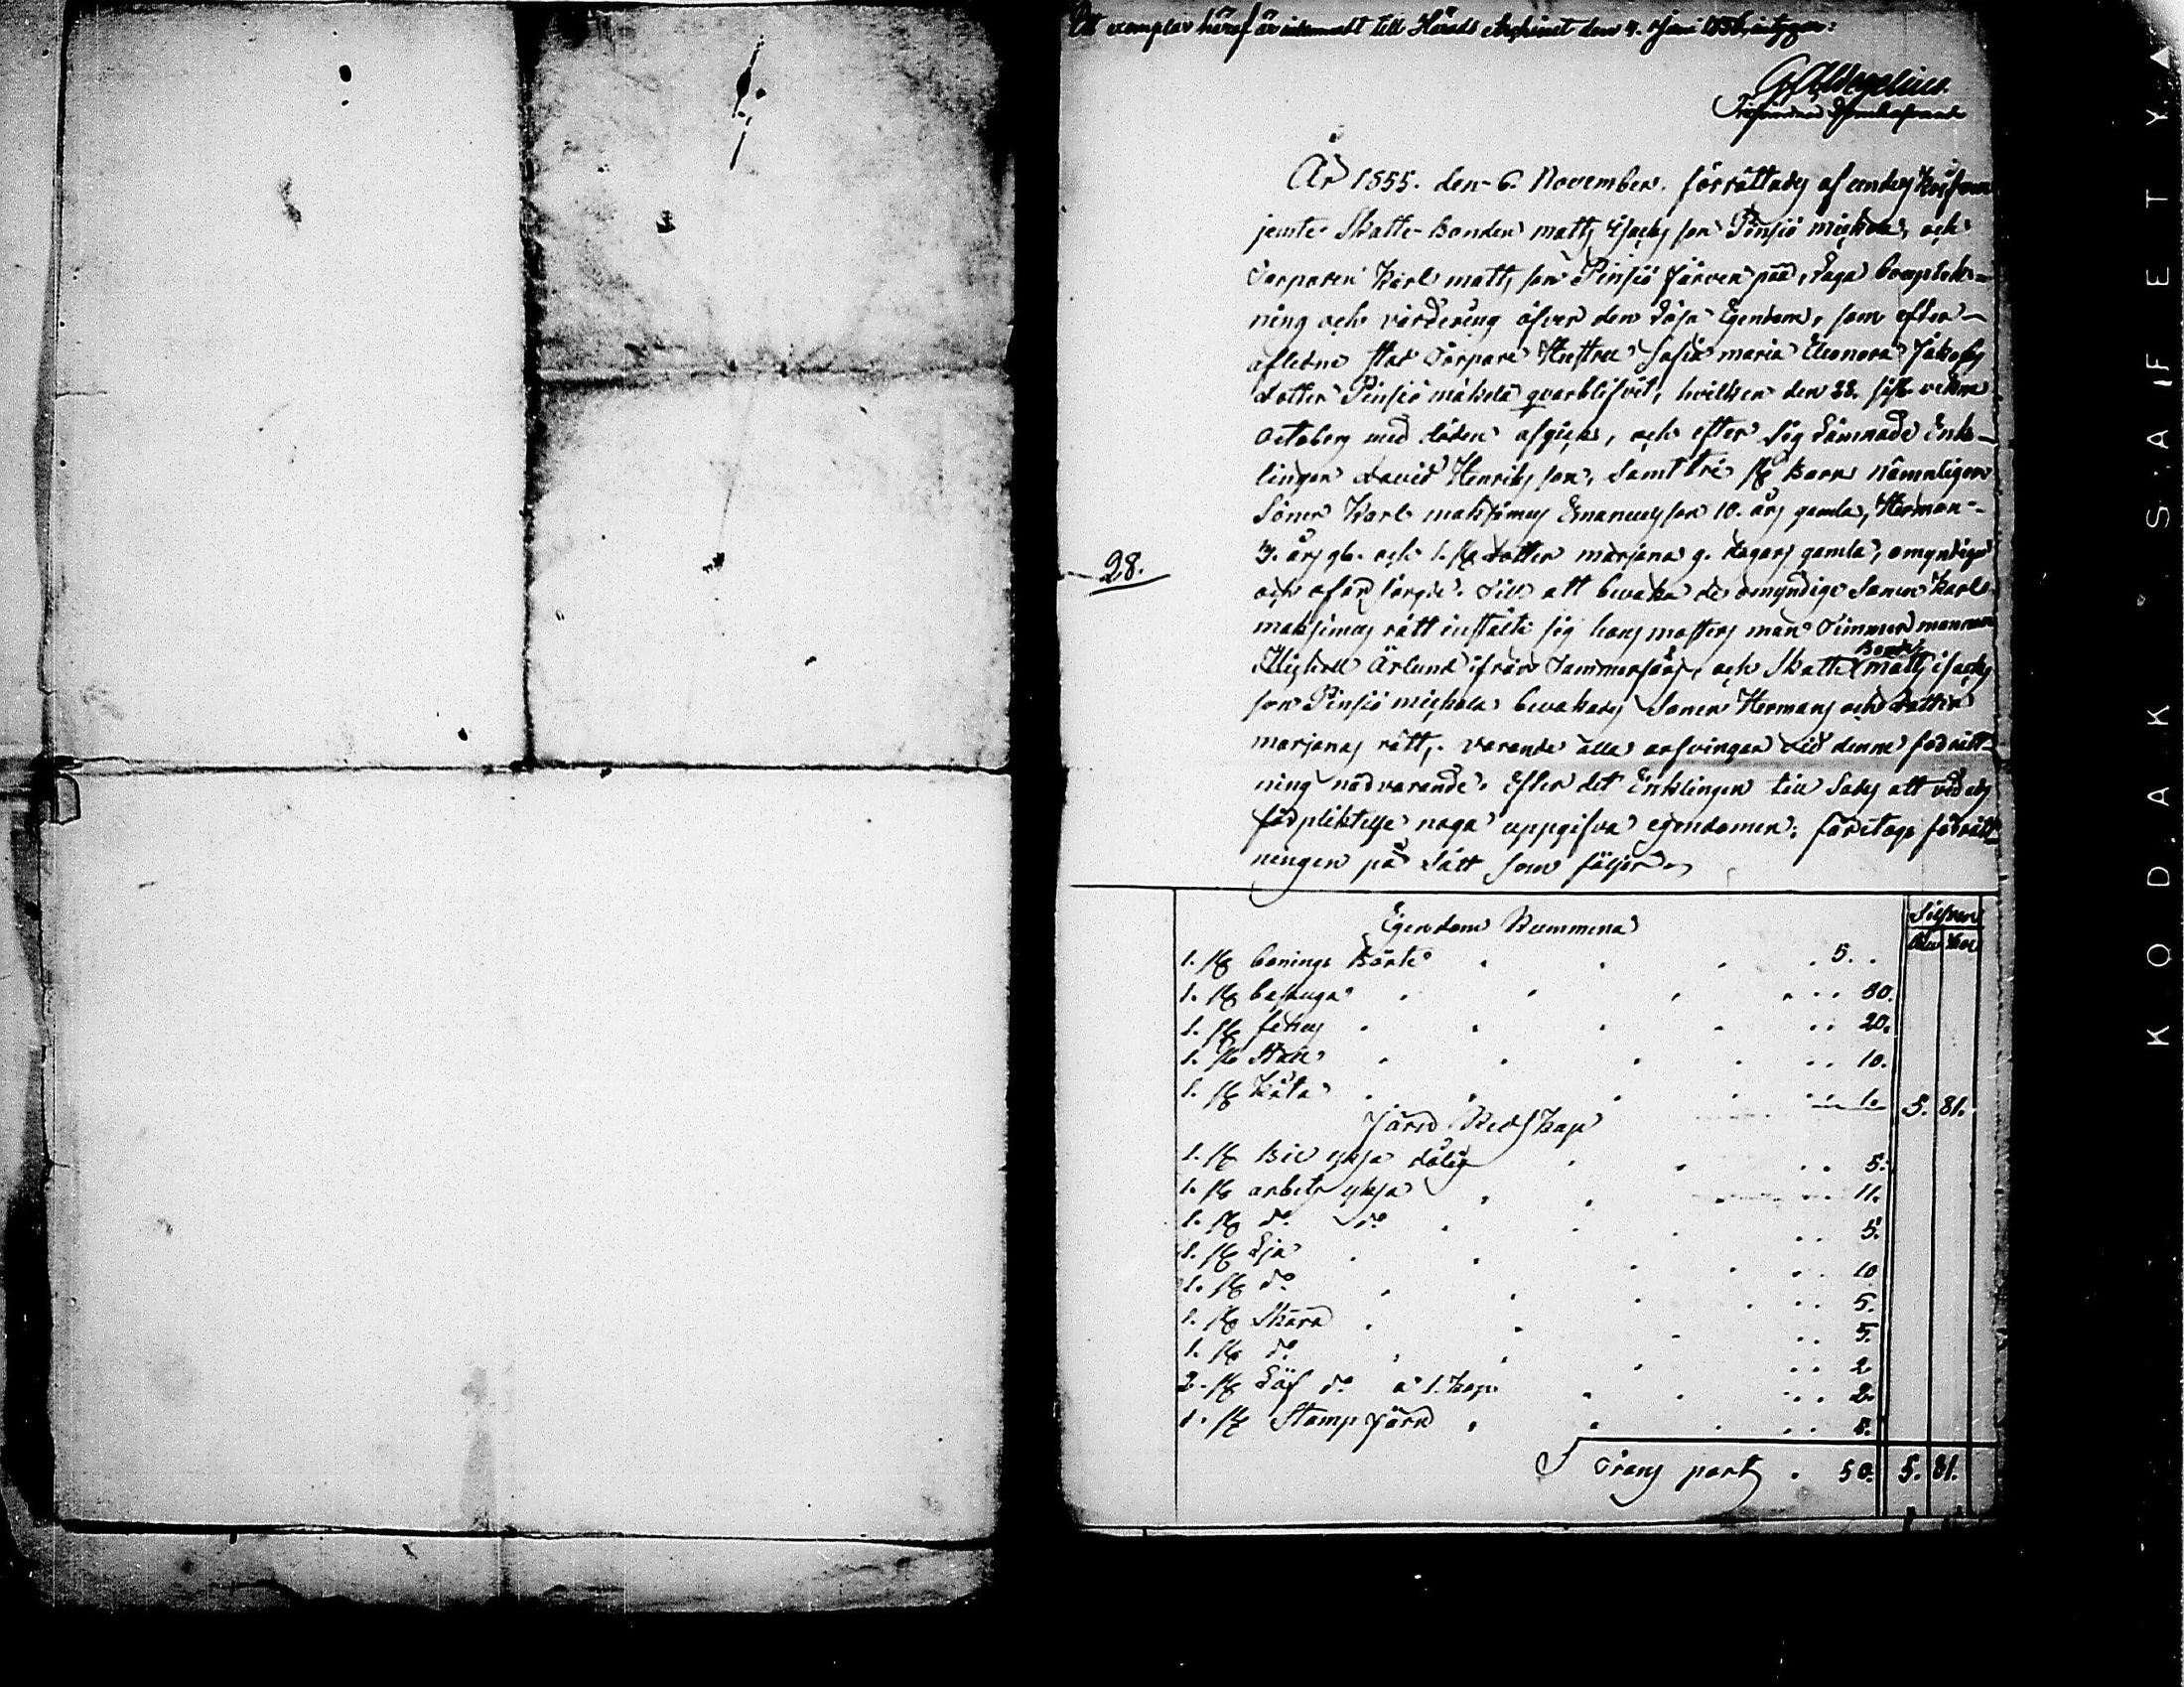 Ett exemplar häraf är inlemnadt till Härads Archivet den 4. Juni 1856, intygar:
År 1855. den 6. November. förrättades af undertecknad
jemte Skatte Bonden matts Isacks son Pinsiö mickola, och
Torparen Karl matts son Pinsiö Järvenpää, Laga bouptek-
ning och värdering öfver den Lösa Egendom, som efter
aflidne Stat Torpare Hustru Sofia maria Eleonora Jakobs
dotter Pinsiö mäkelä qvarblifvit, hvilken den 23. sistl.
October med döden afgick, och efter sig Lämnade Enk-
lingen David Henriks son, Samt tre st barn nämnligen
Sönen Karl maksimus Emanuels son 10. års gamla, Herman
3. års gl. och 1. st dotter marjana 9. dagars gamla, omyndige
28.
och oförsörgde. Till att bevaka de omyndige Sonen Karl
maksimus rätt instälte sig hans mosters man Timmerman
Michell Ärlund ifrån Tammerfors, och Skatte Bonden matts isacks
son Pinsiö mickola bevakade Sonen Hermans och dotter
marjanas rätt, varande alla arfvingar vid denne förrätt-
ning närvarande. Efter det Enklingen till Sades att vid eds
förpliktelse noga uppgifva egendomen; företogs förrätt-
ningen på Sätt som följer
Egendom Rummena
Silfver
Rub Kop
1. st bonings Pörte . . . . 5. .
1. st bastuga . . . . . . 30.
1. st fehus . . . . . . 20.
1. st Stall . . . . . . 10.
1. st Kåta . . . . . . 1. 5. 81.
Järn Redskap
1. st Bil yksa dålig . . . . 5.
1. st arbets yksa . . . . . 11.
1. st do do . . . . . 5.
1. st Lja . . . . . . 10
1. st do . . . . . . 5.
1. st Skära . . . . . 5.
1. st do . . . . . . 2.
2. st Löf do a 1. kop. . . . . 2.
1. st Stamp järn . . . . . 5.
Trans port . 50. 5. 81.
KODAK SAFETY